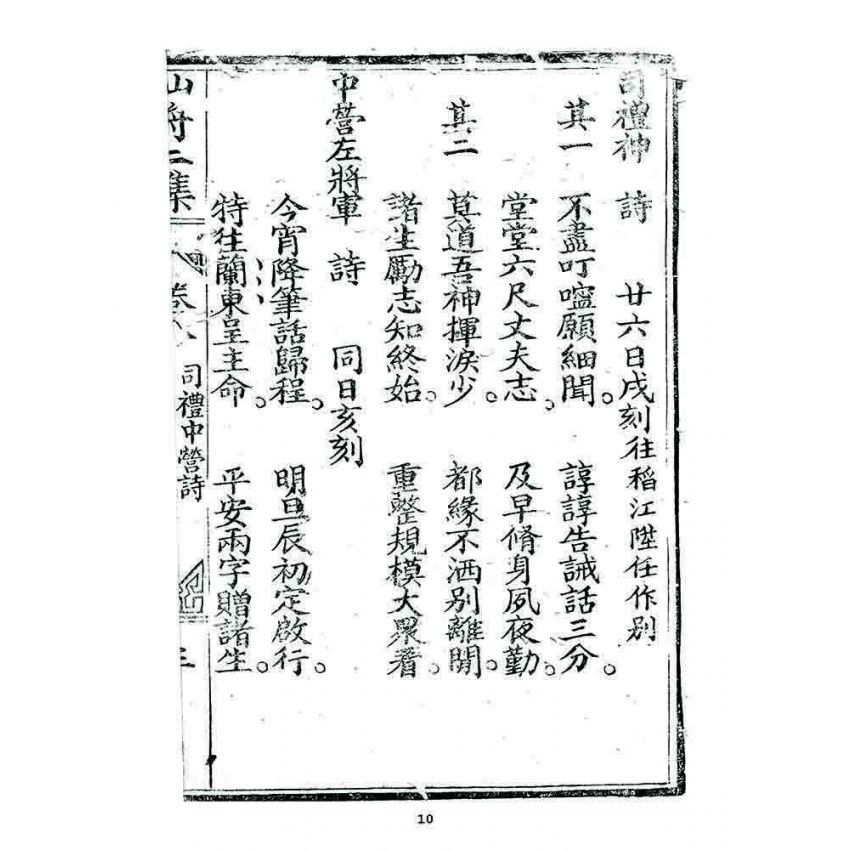 司禮神　詩　廿六日戌刻往稻江陞任作別
其一　不盡叮嚀願細聞。諄諄告誡話三分。
堂堂六尺丈夫志。及早脩身夙夜勤。
其二　莫道吾神揮淚少。都緣不洒別離間。
諸生勵志知終始。重整規模大眾看。
中營左將軍　詩　同日亥刻
今宵降筆話歸程。明旦辰初定啟行。
特往蘭東呈主命。平安兩字贈諸生。
集　卷八　司禮中營詩　三
10